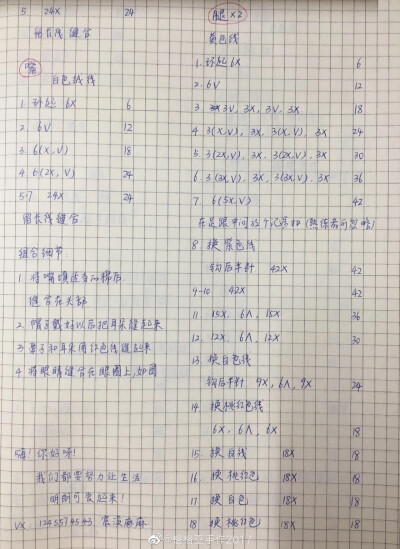 5. 24X 24
留长线缝合
嘴
白色绒线
1. 环起 6X 6
2. 6V 12
3. 6(X,V) 18
4. 6(2X,V) 24
5-7 24X 24
留长线缝合
组合细节
1. 将嘴填适当的棉后
缝合在头部
2. 帽子戴好以后把耳朵缝起来
3. 鼻子和耳朵用红色线缝起来
4. 将眼睛缝合在眼圈上,如图
嗨!你好呀!
我们都要努力让生活
明朗可爱起来!
腿×2
黄色线
1. 环起 6X 6
2. 6V 12
3. 3V, 3X, 3V, 3X 18
4. 3(X,V), 3X, 3(X,V), 3X 24
5. 3(2X,V), 3X, 3(2X,V), 3X 30
6. 3(3X,V), 3X, 3(3X,V), 3X 36
7. 6(5X,V) 42
在足跟中间放个记号扣(熟练者可忽略)
8 换紫色线
钩后半针 42X 42
9-10 42X 42
11. 15X, 6A, 15X 36
12. 12X, 6A, 12X 30
13. 换白色线
钩后半针 9X, 6A, 9X 24
14. 换桃红色线
6X, 6A, 6X 18
15. 换白线 18X 18
16. 换桃红色 18X 18
17. 换白色 18X 18
18. 换桃红色 18X 18